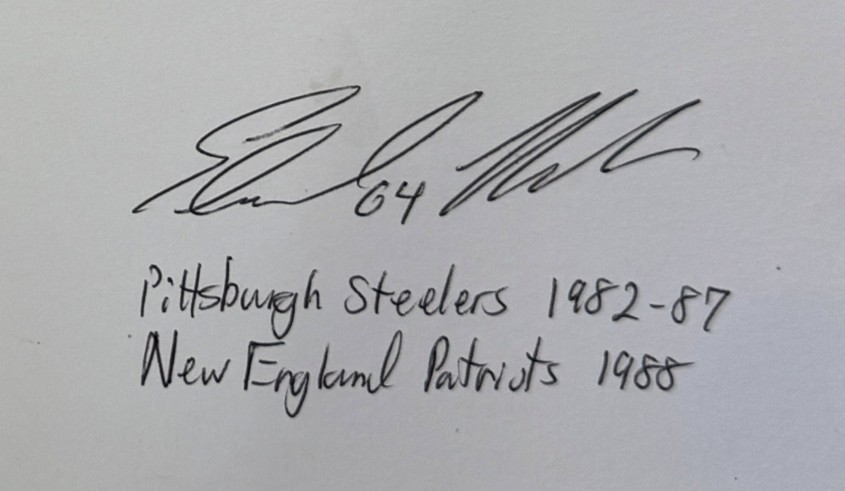 64
Pittsburgh Steelers 1982-87
New England Patriots 1988